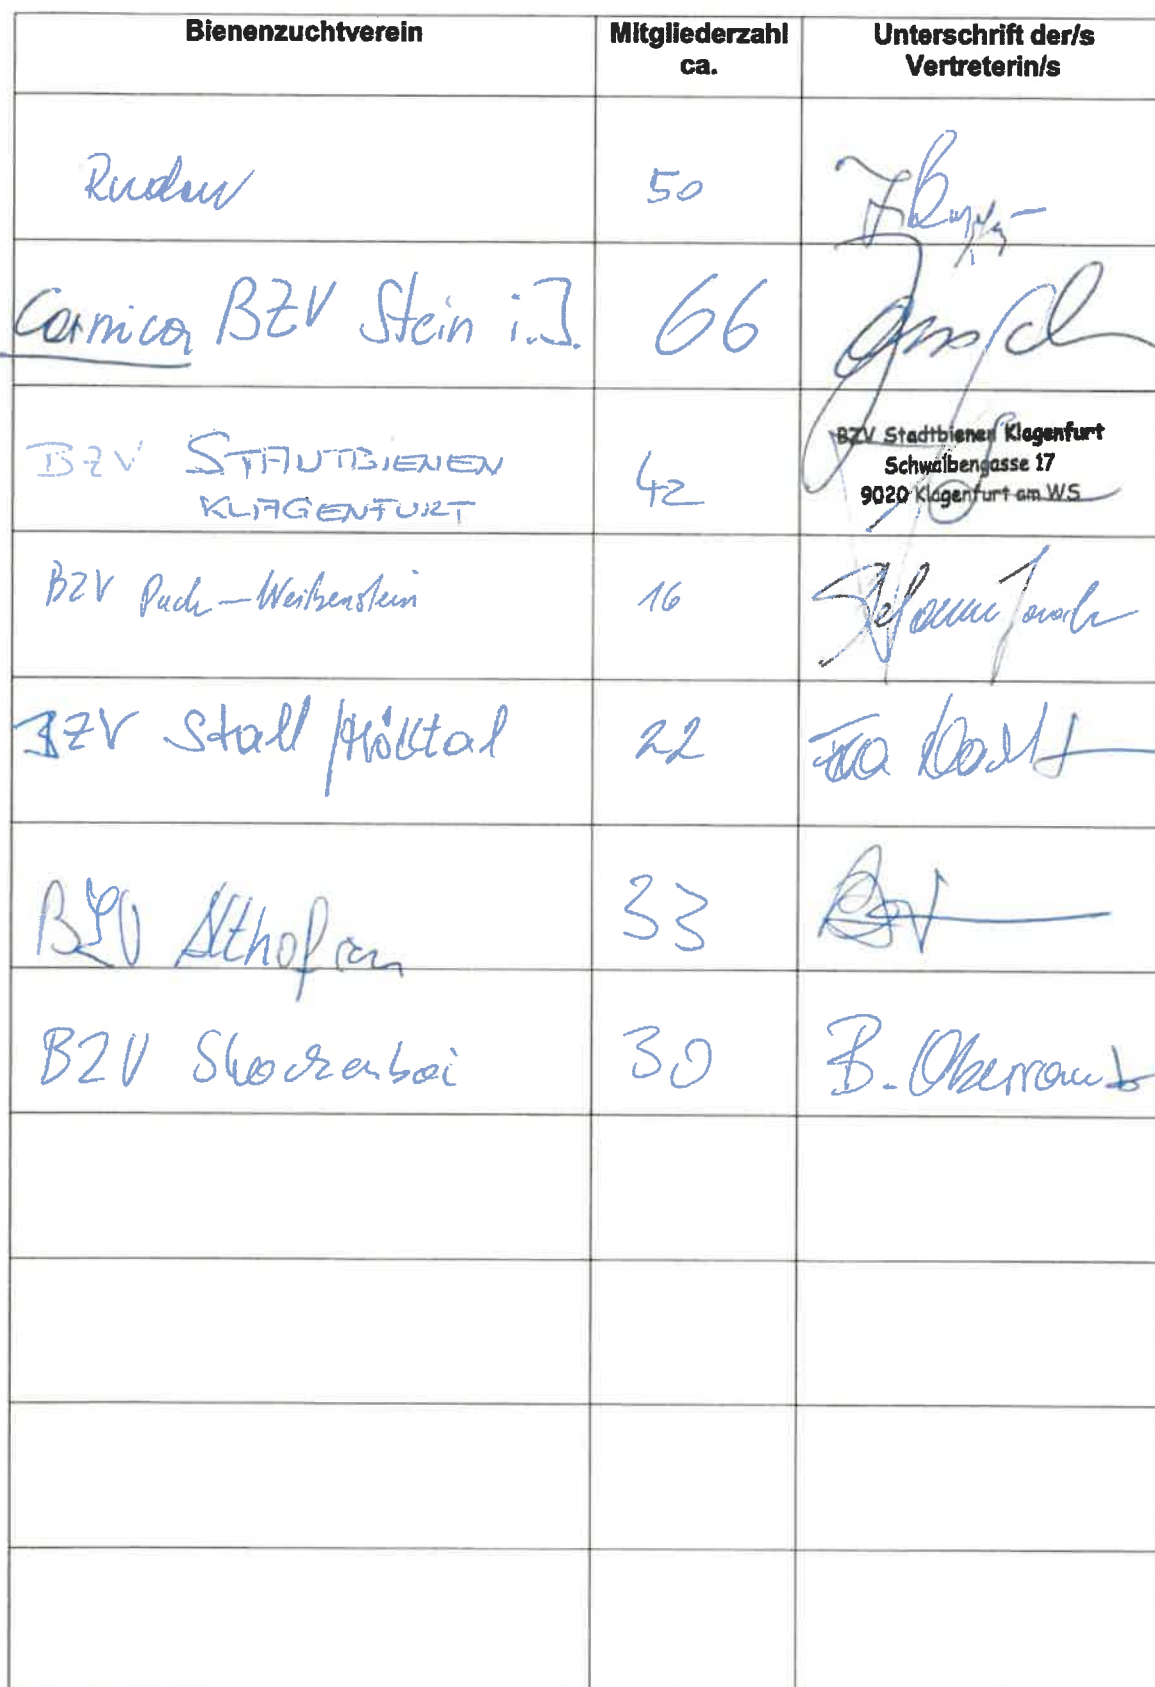 Bienenzuchtverein
Mitgliederzahl ca.
Unterschrift der/s Vertreterin/s
Ruden 50
Carnica BZV Stein i.J. 66
BZV STADTBIENEN
KLAGENFURT
42
BZV Stadtbienen Klagenfurt
Schwalbengasse 17
9020 Klagenfurt am WS
BZV Puch-Weißenstein 16
BZV Stall/Mölltal 22
BZV Althofen 33
BZV 30 B. Oberrau